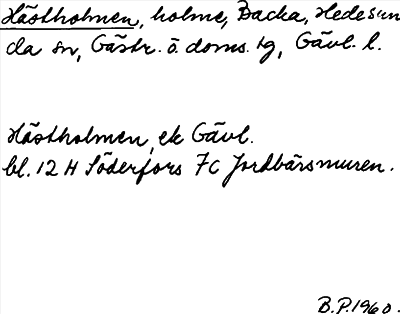 Hästholmen, holme, Backa, Hedesun
da sn, Gästr. ö. doms. tg, Gävl. l.
Hästholmen, ek Gävl.
bl. 12 H Söderfors 7c Jordbärsmuren.
B.P. 1960.